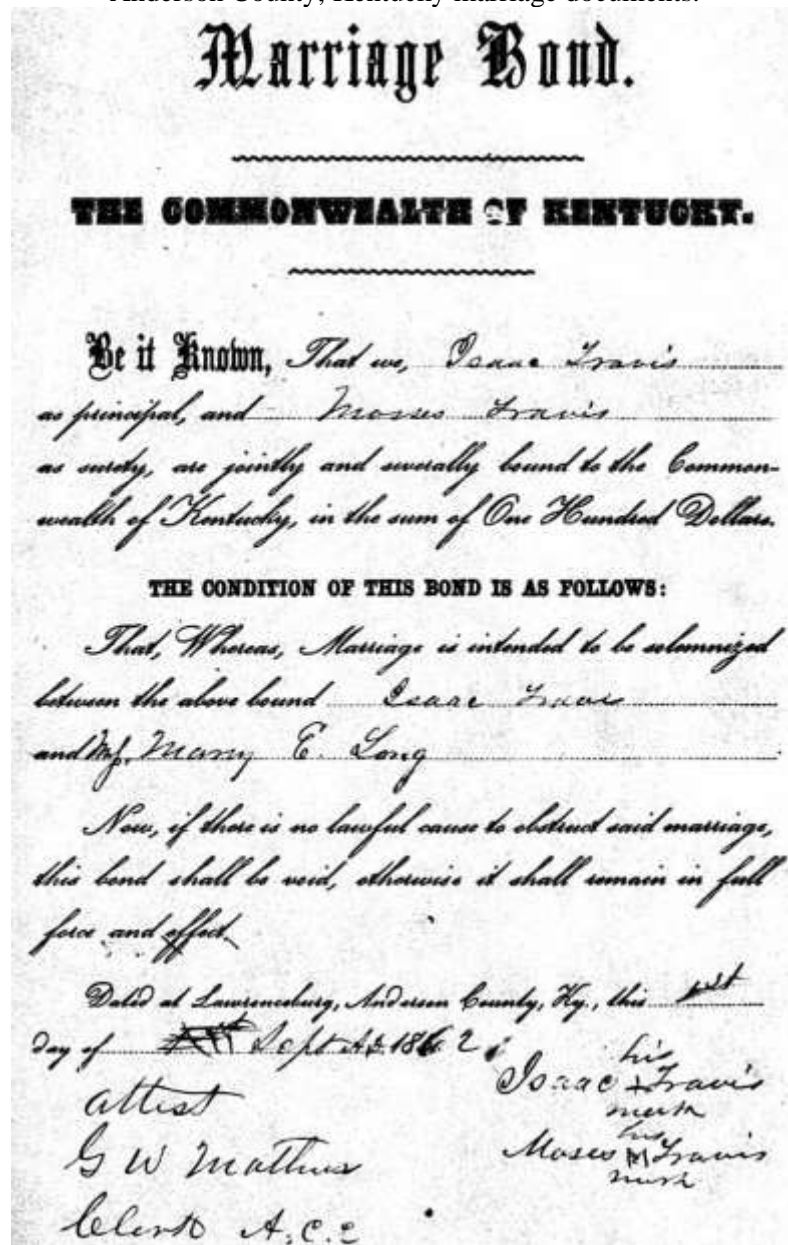 Anderson County, Kentucky marriage documents.
Marriage Bond.
THE COMMONWEALTH OF KENTUCKY.
Be it Known, That we, Isaac Travis
as principal, and Moses Travis
as surety, are jointly and severally bound to the Common-
wealth of Kentucky, in the sum of One Hundred Dollars.
THE CONDITION OF THIS BOND IS AS FOLLOWS:
That, Whereas, Marriage is intended to be solemnized
between the above bound Isaac Travis
and Ms. Mary E. Long
Now, if there is no lawful cause to obstruct said marriage,
this bond shall be void, otherwise it shall remain in full
force and effect.
Dated at Lawrenceburg, Anderson County, Ky., this 1st
day of Sept AD 1862
his
Isaac + Travis
mark
attest
his
Moses M Travis
mark
G W Mathus
Clerk A.C.C